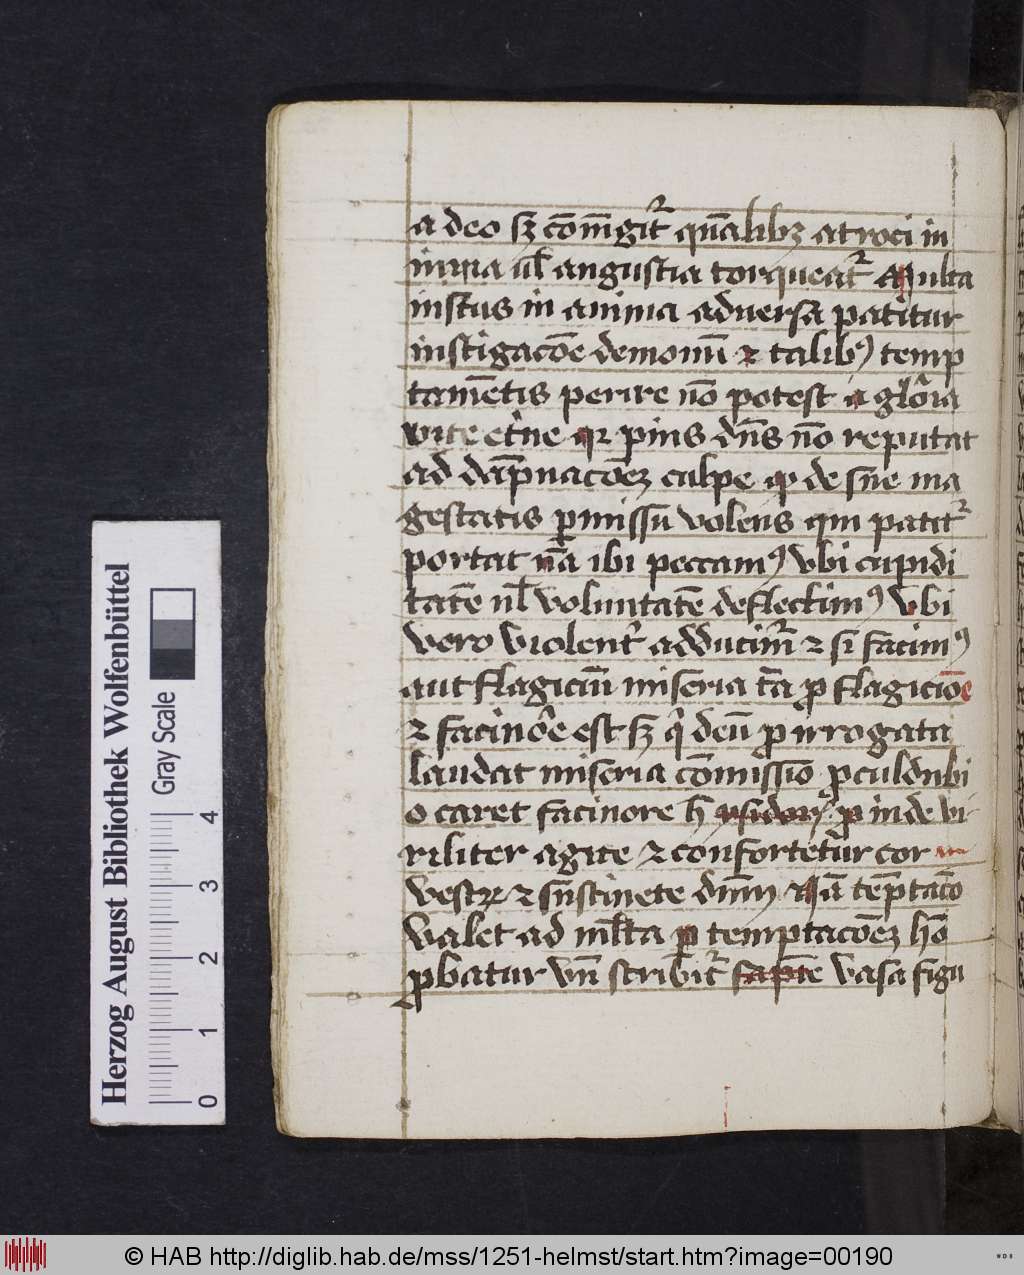 a deo sꝫ cōm̄gitᷣ quālibꝫ atroci in
iuria ul̄ angustia torqueatᷣ Multa
iustus in anima aduersa patitur
instigacōe demonū ⁊ talibꝰ temp
tamētis perire nō potest a glōria
vite et̓ne qꝛ pius dn̄s nō reputat
ad dāpnacōeꝫ culpe qꝫ de sue ma
gestatis ꝑmissu volens qui patitᷣ
portat nā ibi peccamꝰ vbi cupidi
tatē ul̄ voluntatē deflectimꝰ vbi
vero violent̓ adducim̄ ⁊ si facimꝰ
aut flagiciū miseria tā ꝓ flagicioē
⁊ facinōe est sꝫ qͥ deū ꝓ irrogata
laudat miseria cōmissio ꝓculdubi
o caret facinore h ysidorꝰ ꝓ inde vi-
riliter agite ⁊ confortetur cor
vestrꝫ ⁊ sustinete dnm̄ Nā tēptacō
valet ad ml̄ta ꝑ temptacōeꝫ hō
ꝓbatur vn̄ scribitᷣ sapiē vasa figu
Herzog August Bibliothek Wolfenbüttel
Gray Scale
0 1 2 3 4
© HAB http://diglib.hab.de/mss/1251-helmst/start.htm?image=00190